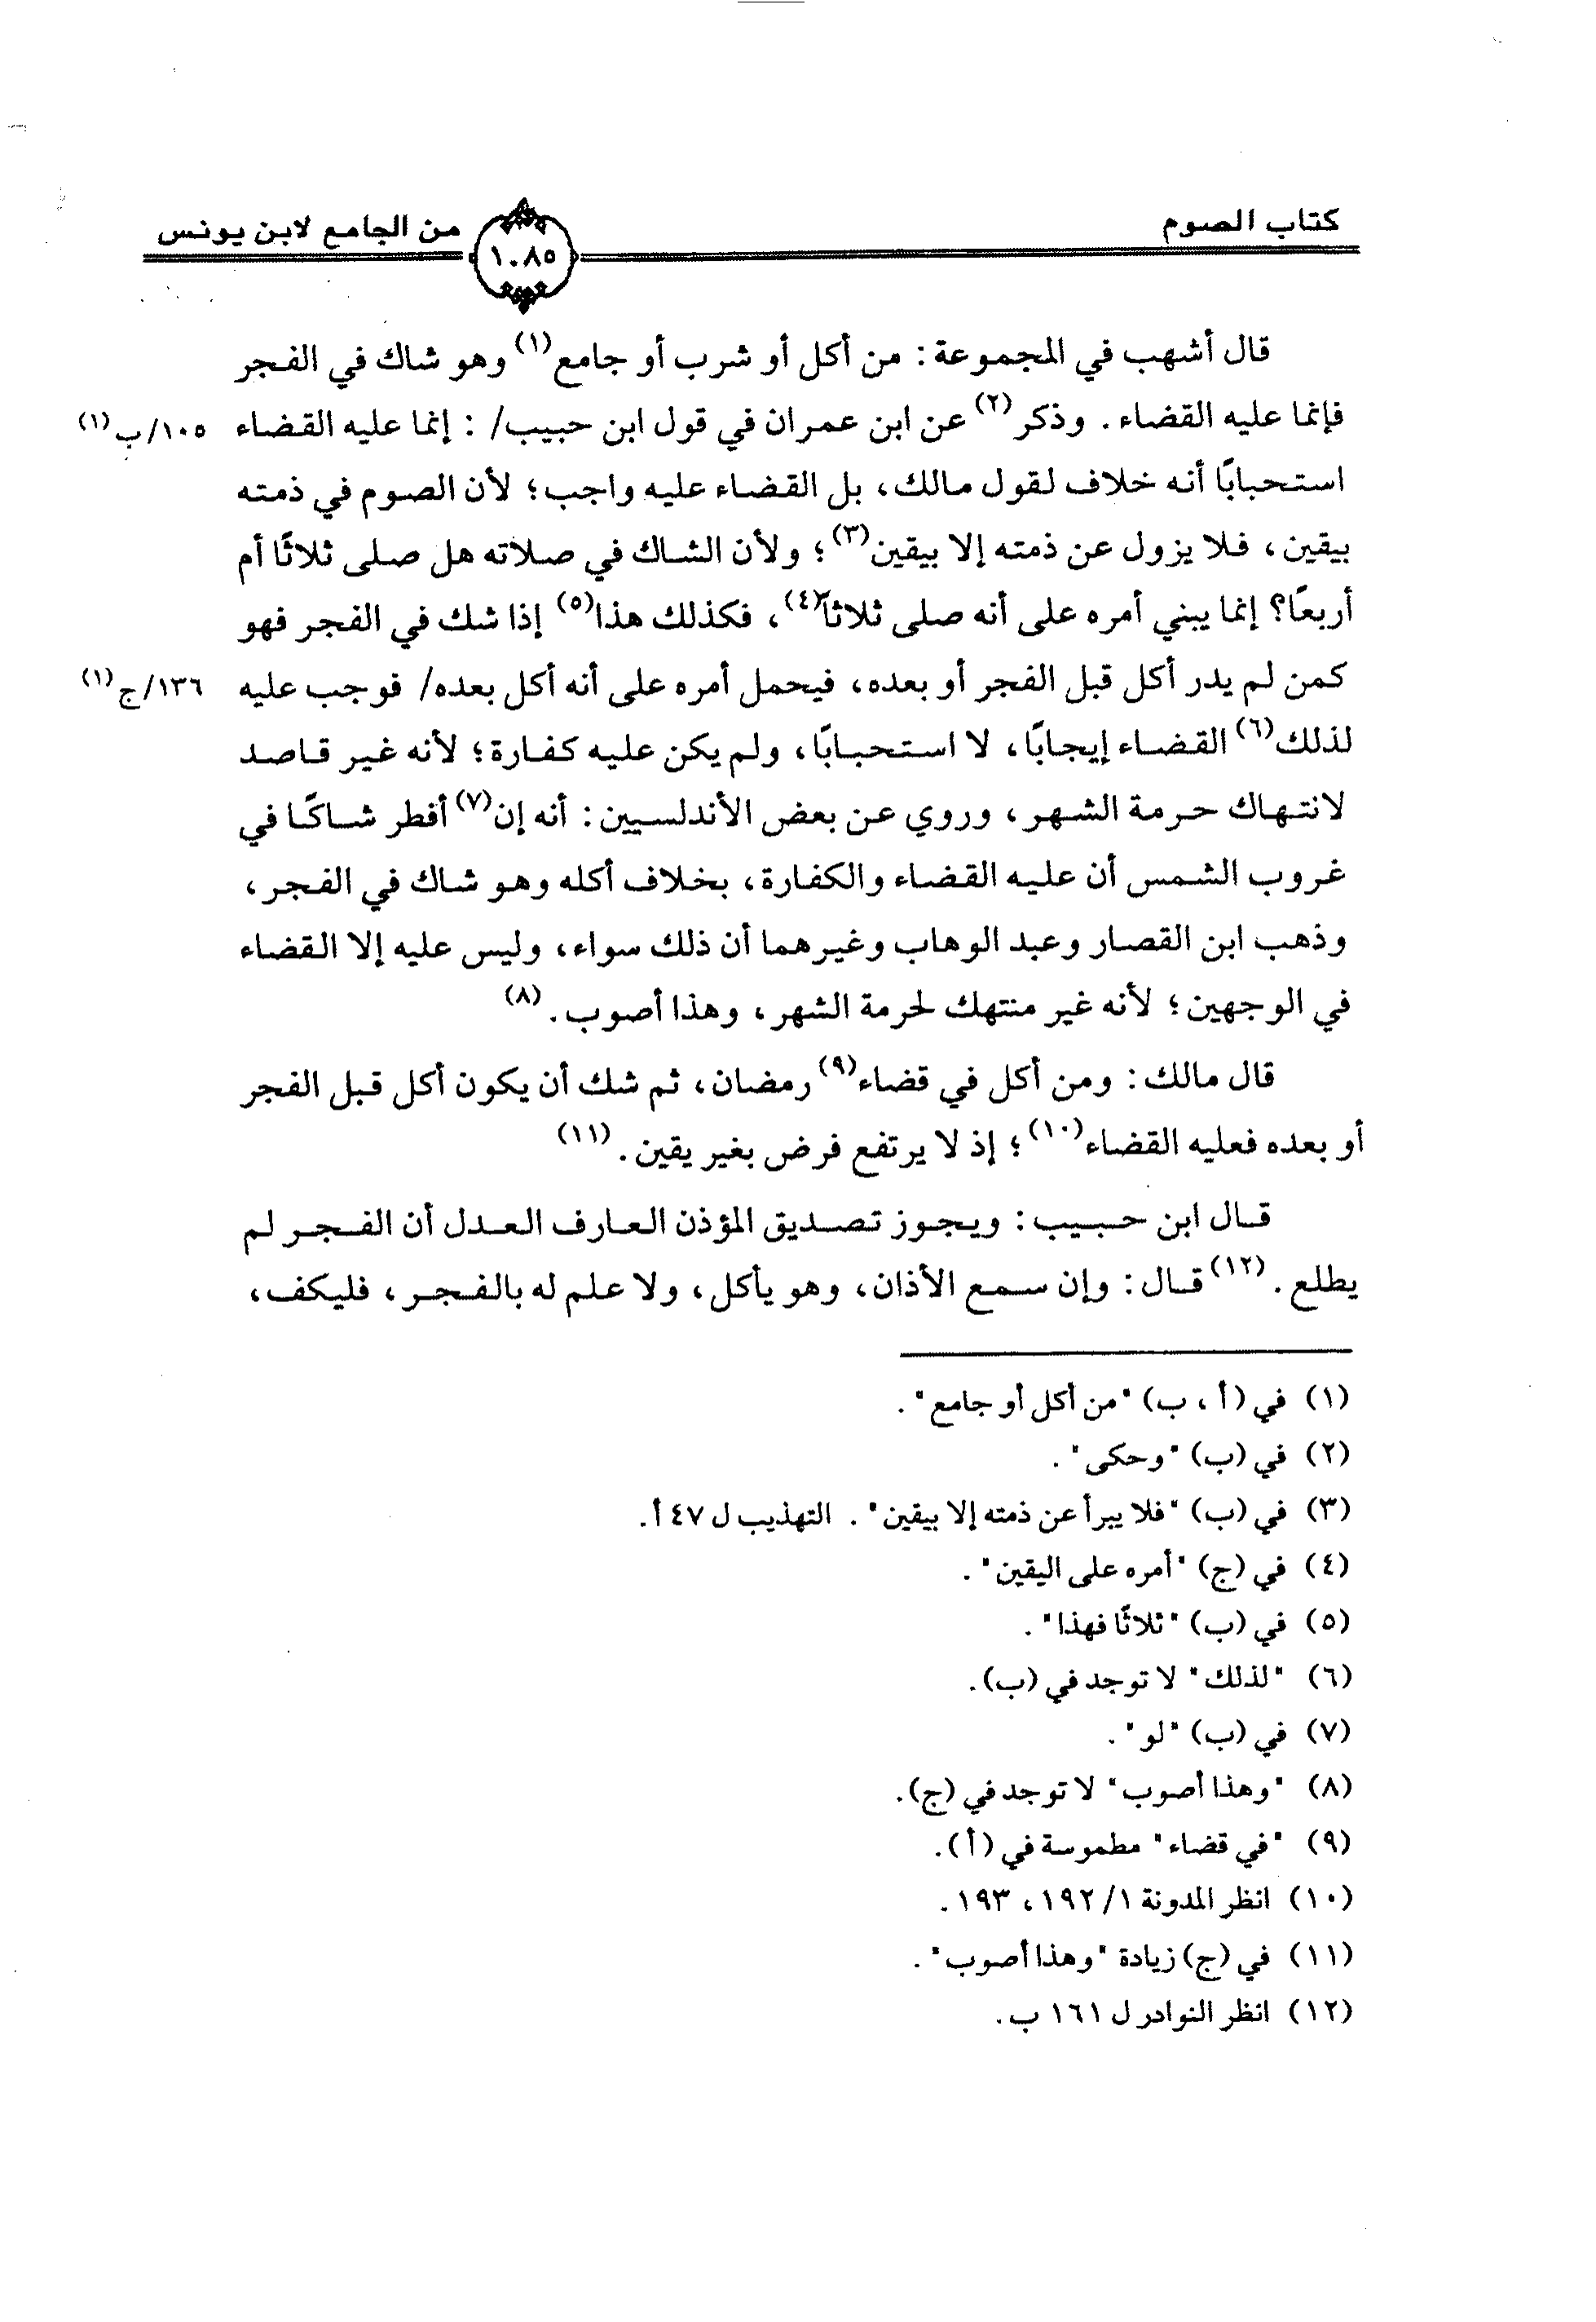 كتاب الصوم
١٠٨٥
من الجامع لابن يونس
قال أشهب في المجموعة: من أكل أو شرب أو جامع(١) وهو شاك في الفجر
فإنما عليه القضاء. وذكر(٢) عن ابن عمران في قول ابن حبيب/ : إنما عليه القضاء
١٠٥/ب(١)
استحبابًا أنه خلاف لقول مالك، بل القضاء عليه واجب؛ لأن الصوم في ذمته
بيقين، فلا يزول عن ذمته إلا بيقين(٣)؛ ولأن الشاك في صلاته هل صلى ثلاثًا أم
أربعًا؟ إنما يبني أمره على أنه صلى ثلاثاً(٤)، فكذلك هذا(٥) إذا شك في الفجر فهو
كمن لم يدر أكل قبل الفجر أو بعده، فيحمل أمره على أنه أكل بعده/ فوجب عليه
١٣٦/ج(١)
لذلك(٦) القضاء إيجابًا، لا استحبابًا، ولم يكن عليه كفارة؛ لأنه غير قاصد
لانتهاك حرمة الشهر، وروي عن بعض الأندلسيين: أنه إن(٧) أفطر شاكًا في
غروب الشمس أن عليه القضاء والكفارة، بخلاف أكله وهو شاك في الفجر،
وذهب ابن القصار وعبد الوهاب وغيرهما أن ذلك سواء، وليس عليه إلا القضاء
في الوجهين؛ لأنه غير منتهك لحرمة الشهر، وهذا أصوب.(٨)
قال مالك: ومن أكل في قضاء(٩) رمضان، ثم شك أن يكون أكل قبل الفجر
أو بعده فعليه القضاء(١٠)؛ إذ لا يرتفع فرض بغير يقين.(١١)
قال ابن حبيب: ويجوز تصديق المؤذن العارف العدل أن الفجر لم
يطلع.(١٢) قال: وإن سمع الأذان، وهو يأكل، ولا علم له بالفجر، فليكف،
(١) في (أ، ب) "من أكل أو جامع".
(٢) في (ب) "وحكى".
(٣) في (ب) "فلا يبرأ عن ذمته إلا بيقين". التهذيب ل ٤٧ أ.
(٤) في (ج) "أمره على اليقين".
(٥) في (ب) "ثلاثًا فهذا".
(٦) "لذلك" لا توجد في (ب).
(٧) في (ب) "لو".
(٨) "وهذا أصوب" لا توجد في (ج).
(٩) "في قضاء" مطموسة في (أ).
(١٠) انظر المدونة ١/ ١٩٢، ١٩٣.
(١١) في (ج) زيادة "وهذا أصوب".
(١٢) انظر النوادر ل ١٦١ ب.